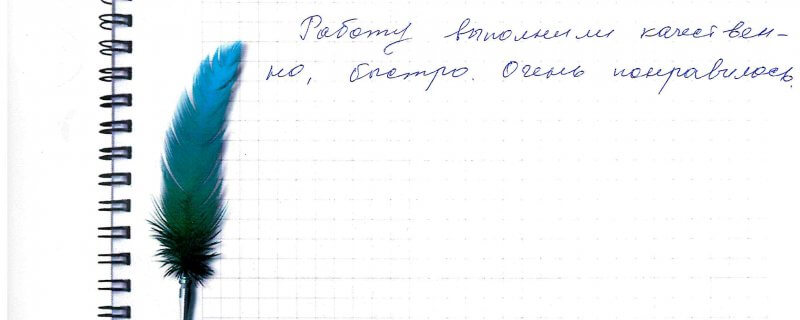 Работу выполнили качествен-
но, быстро. Очень понравилось.